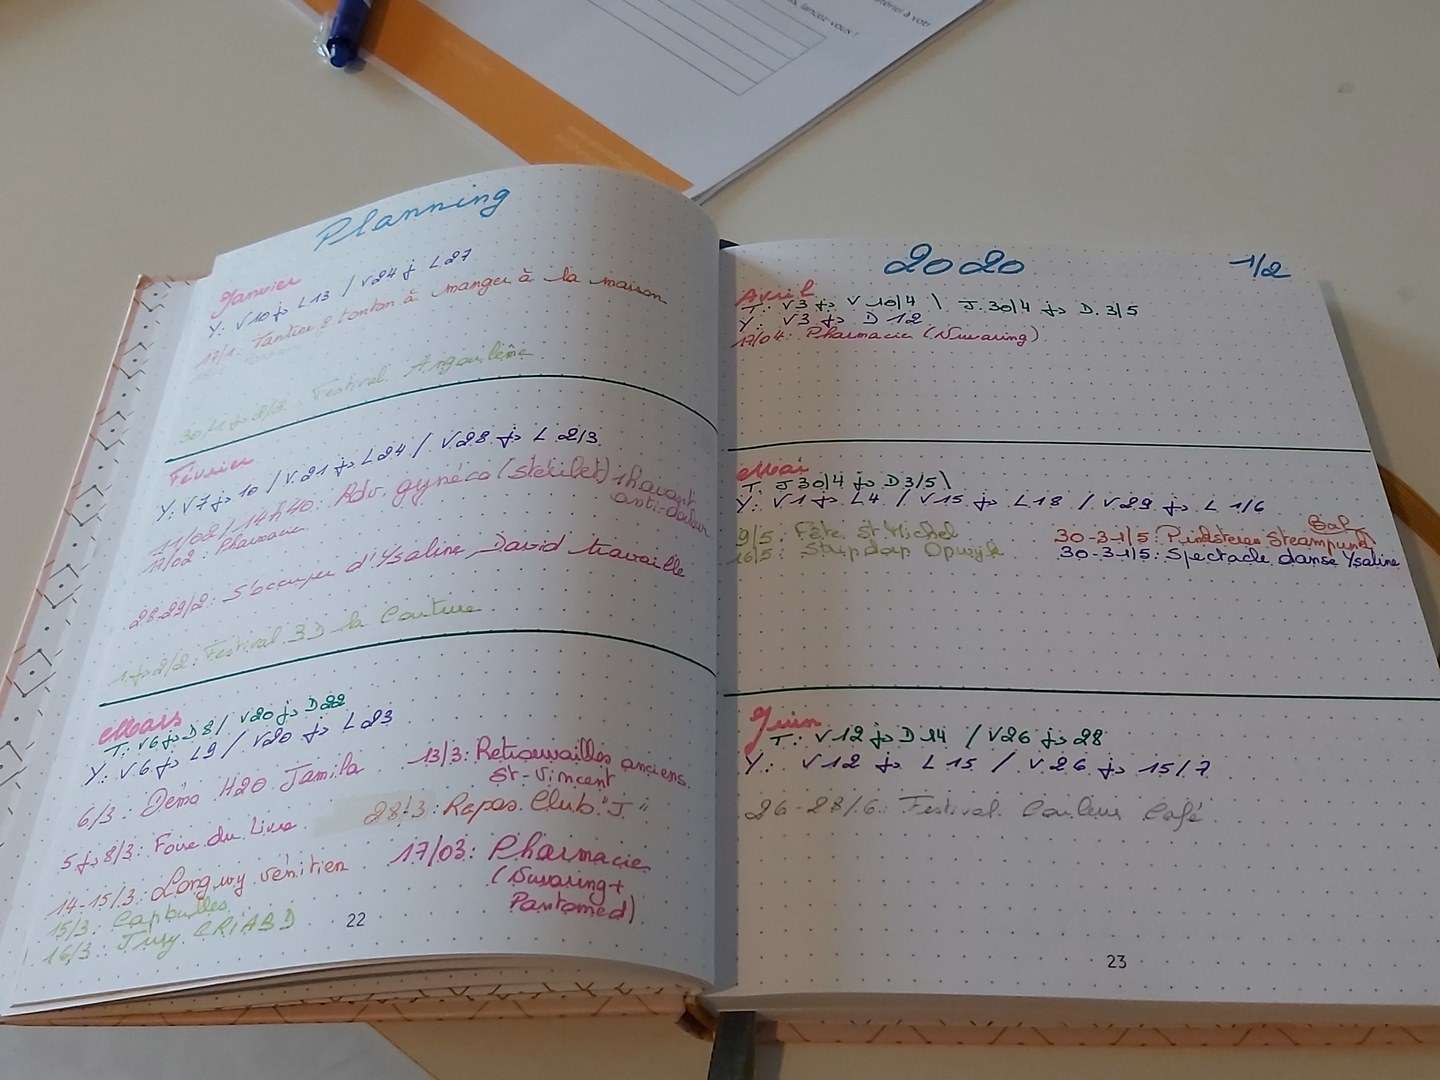 lancez-vous !
Planning
Janvier
Y: V10 j> L13 / V24 j> L27
17/1: Tantine & tonton à manger à la maison
30/1 j> 2/2: Festival Angoulême
Février
Y: V7 j> 10 / V21 j> L24 / V28 j> L 2/3
11/02/14h40: Rdv. gynéco (stérilet) 1h avant
anti-douleur
17/02: Pharmacie
28-29/2: S'occuper d'Ysaline, David travaille
1 j> 2/2: Festival BD la Couture
Mars
T: V6 j> D8 / V20 j> D22
Y: V6 j> L9 / V20 j> L23
6/3: Démo H2O Jamila
5 j> 8/3: Foire du Livre
14-15/3: Longwy vénitien
15/3: Capbulles
16/3: Jury CRIABD
13/3: Retrouvailles anciens
St-Vincent
28/3: Repas Club "J"
17/03: Pharmacie
(Nuvaring +
Pantomed)
22
2020
1/2
Avril
T: V3 j> V 10/4 \ J.30/4 j> D.3/5
Y: V3 j> D 12
17/04: Pharmacie (Nuvaring)
Mai
T: J30/4 j> D3/5 \
Y: V1 j> L4 / V15 j> L18 / V29 j> L 1/6
9/5: Fête St Michel
16/5: Stripdap
30-31/5: Steampunk
30-31/5: Spectacle danse Ysaline
Juin
T: V12 j> D14 / V26 j> 28
Y: V12 j> L15 / V26 j> 15/7
26-28/6: Festival Couleur Café
23